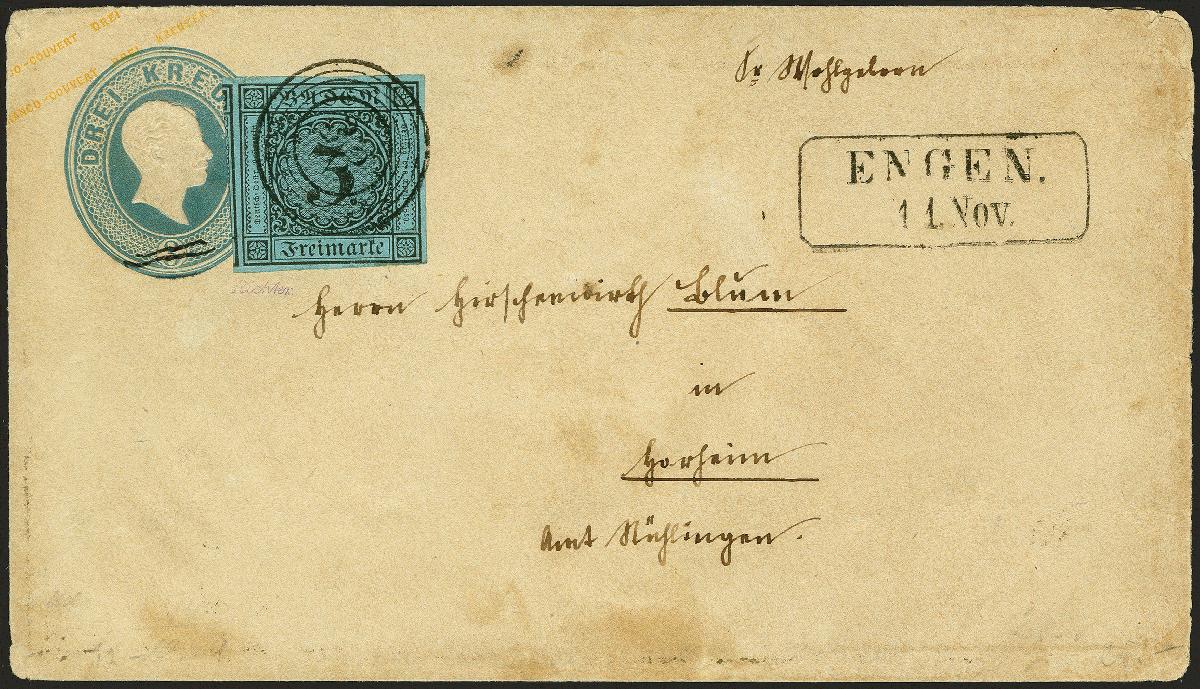 CO-COUVERT DREI KREUZER
ANCO-COUVERT DREI
DREI KREU
BADEN
3.
Freimarke
Sr. Wohlgeborn
ENGEN.
11. Nov.
Herrn Hirschenwirth Blum
in
Horheim
Amt Stühlingen.